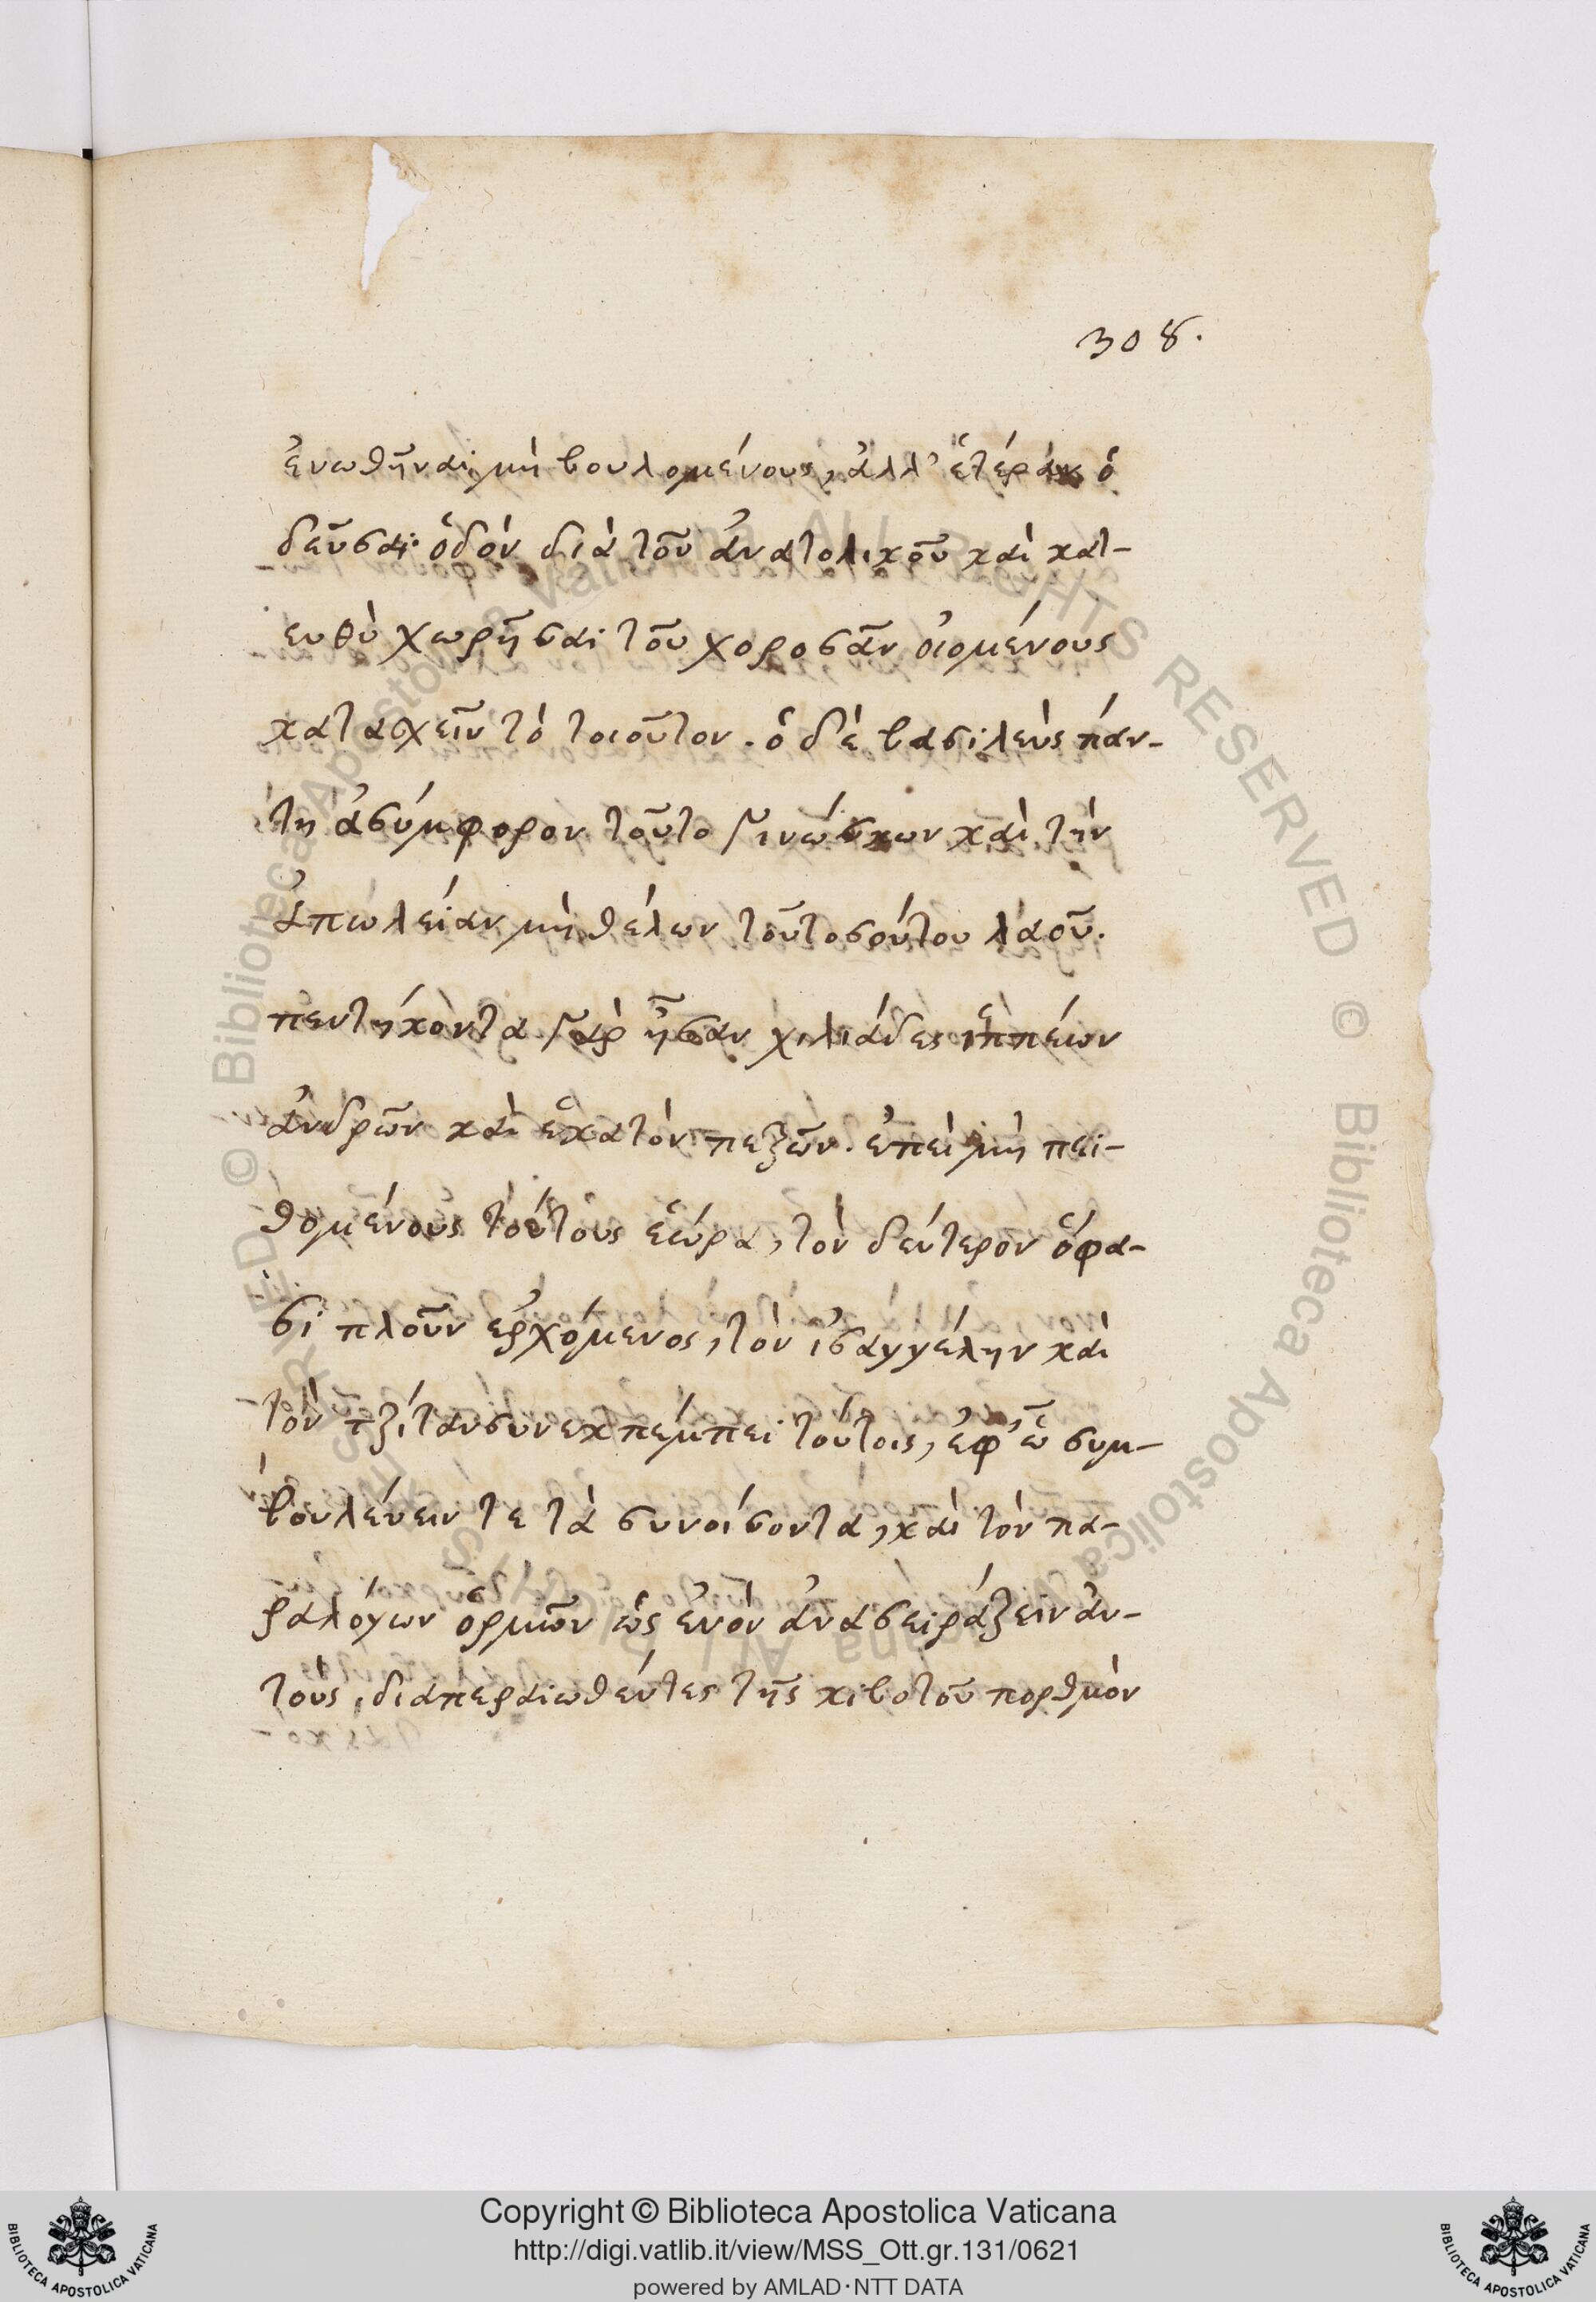 308.
ἑνωθῆναι μὴ βουλομένους, ἀλλ' ἑτέραν ὁ
δεῦσαι ὁδὸν διὰ τοῦ ἀνατολικοῦ καὶ κατ-
ευθὺ χωρῆσαι τοῦ χοροσᾶν οἰομένους
κατασχεῖν τὸ τοιοῦτον. ὁ δὲ βασιλεὺς πάν-
τη ἀσύμφορον τοῦτο γινώσκων καὶ τὴν
ἀπωλείαν μὴ θέλων τοῦτοσούτου λαοῦ.
πεντήκοντα γὰρ ἦσαν χιλιάδες ἱππέων
ἀνδρῶν καὶ ἑκατὸν πεζῶν. ἐπεὶ μὴ πει-
θομένους τούτους ἑώρα, τὸν δεύτερον ὅφα-
σι πλοῦν ἐρχόμενος, τὸν ἰσαγγέλην καὶ
τὸν τζίταν συνεκπέμπει τούτοις, ἐφ' ὧ συμ-
βουλεύειν τε τὰ συνοίσοντα, καὶ τὸν πα-
ραλόγων ὁρμῶν ὡς ἐνὸν ἀνασειράζειν ἀυ-
τούς, διαπεραιωθέντες τῆς κιβοτοῦ πορθμὸν
Copyright © Biblioteca Apostolica Vaticana
http://digi.vatlib.it/view/MSS_Ott.gr.131/0621
powered by AMLAD·NTT DATA